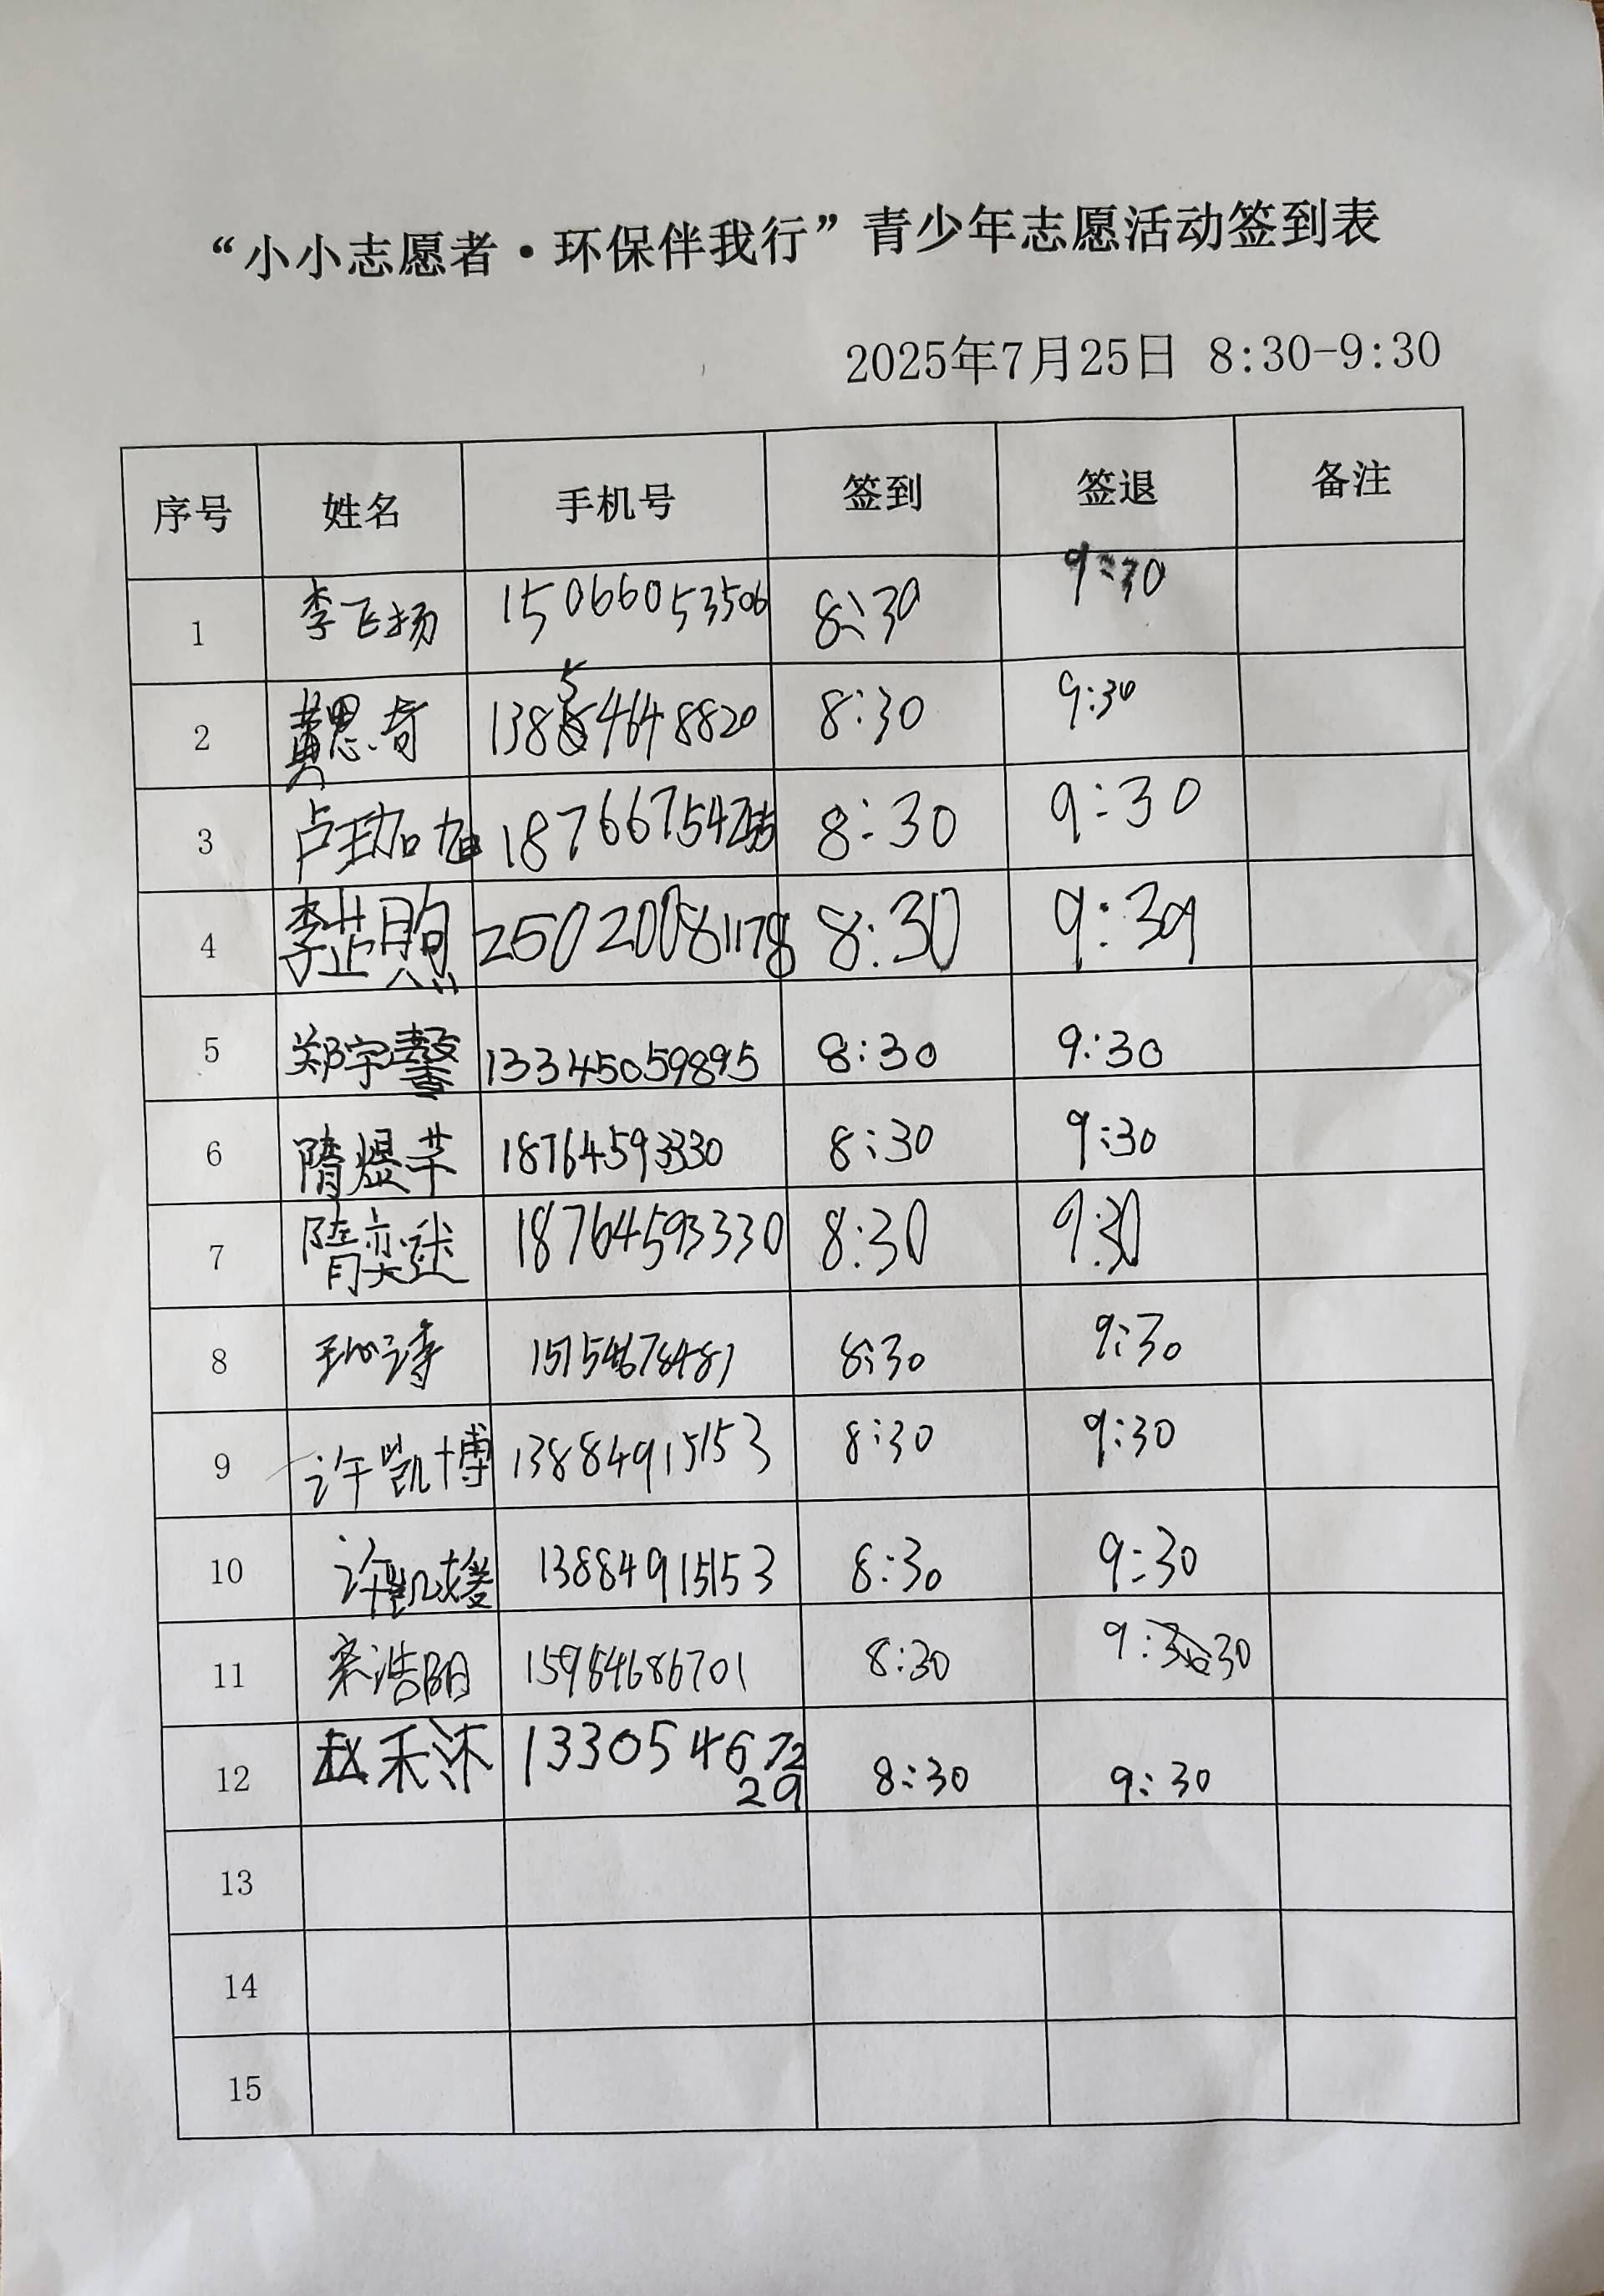 “小小志愿者·环保伴我行”青少年志愿活动签到表
2025年7月25日 8:30-9:30
序号 姓名 手机号 签到 签退 备注
1 李飞扬 15066053506 8:30 9:30
2 黄思奇 13854648820 8:30 9:30
3 卢 8:30 9:30
4 李芷煦 25020081178 8:30 9:30
5 郑宇馨 13345059895 8:30 9:30
6 隋煜芊 18764593330 8:30 9:30
7 隋奕 18764593330 8:30 9:30
8 8:30 9:30
9 许凯博 13884915153 8:30 9:30
10 许凯 13884915153 8:30 9:30
11 宋浩阳 15954686701 8:30 9:30
12 赵禾沐 8:30 9:30
13
14
15